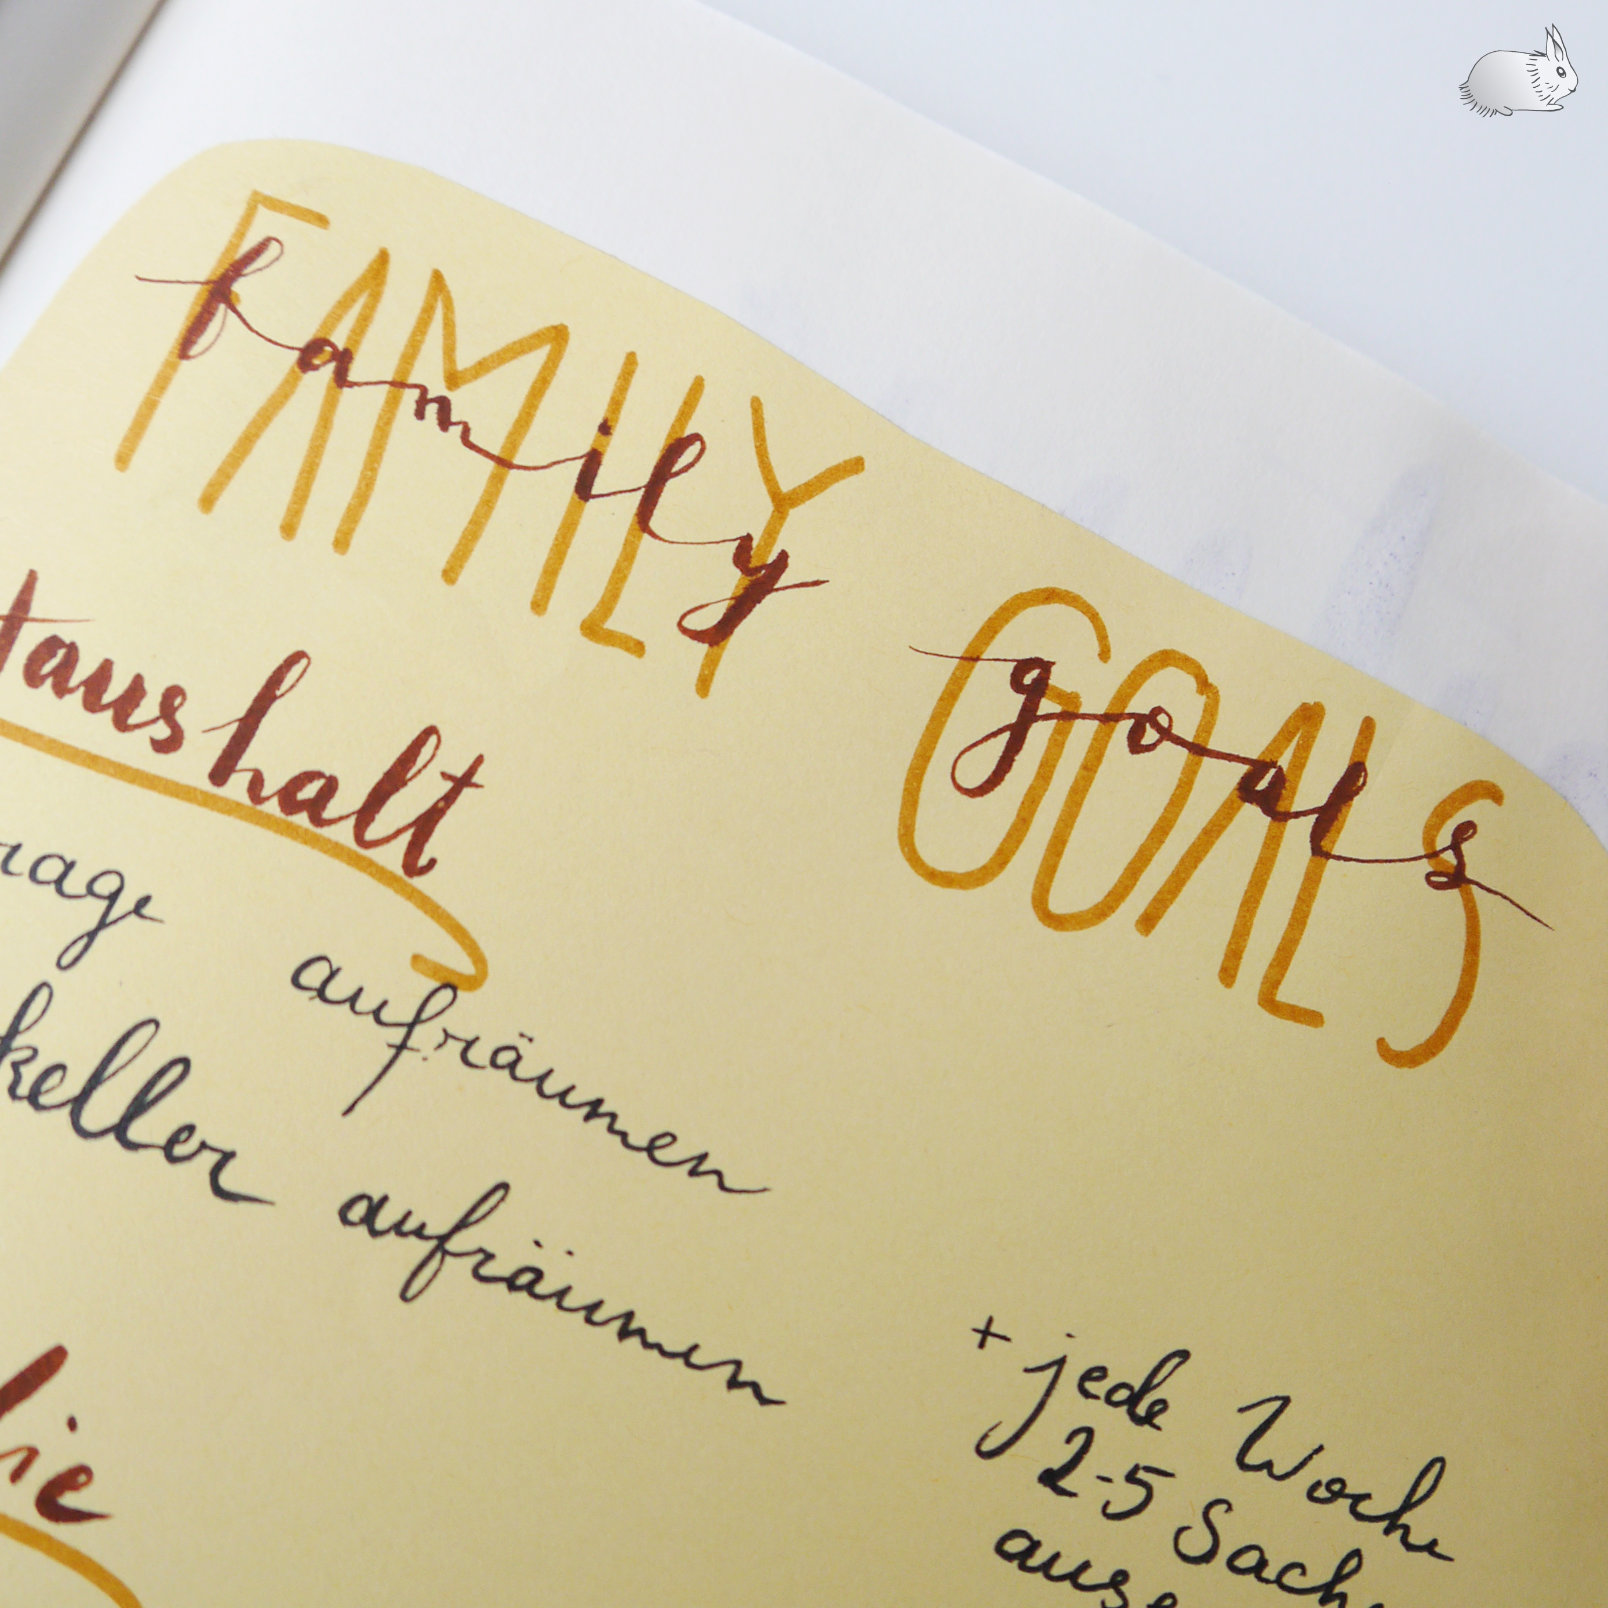 FAMILY GOALS
family goals
Haushalt
rage aufräumen
keller aufräumen
lie
+ jede Woche
2-5 Sach
auss